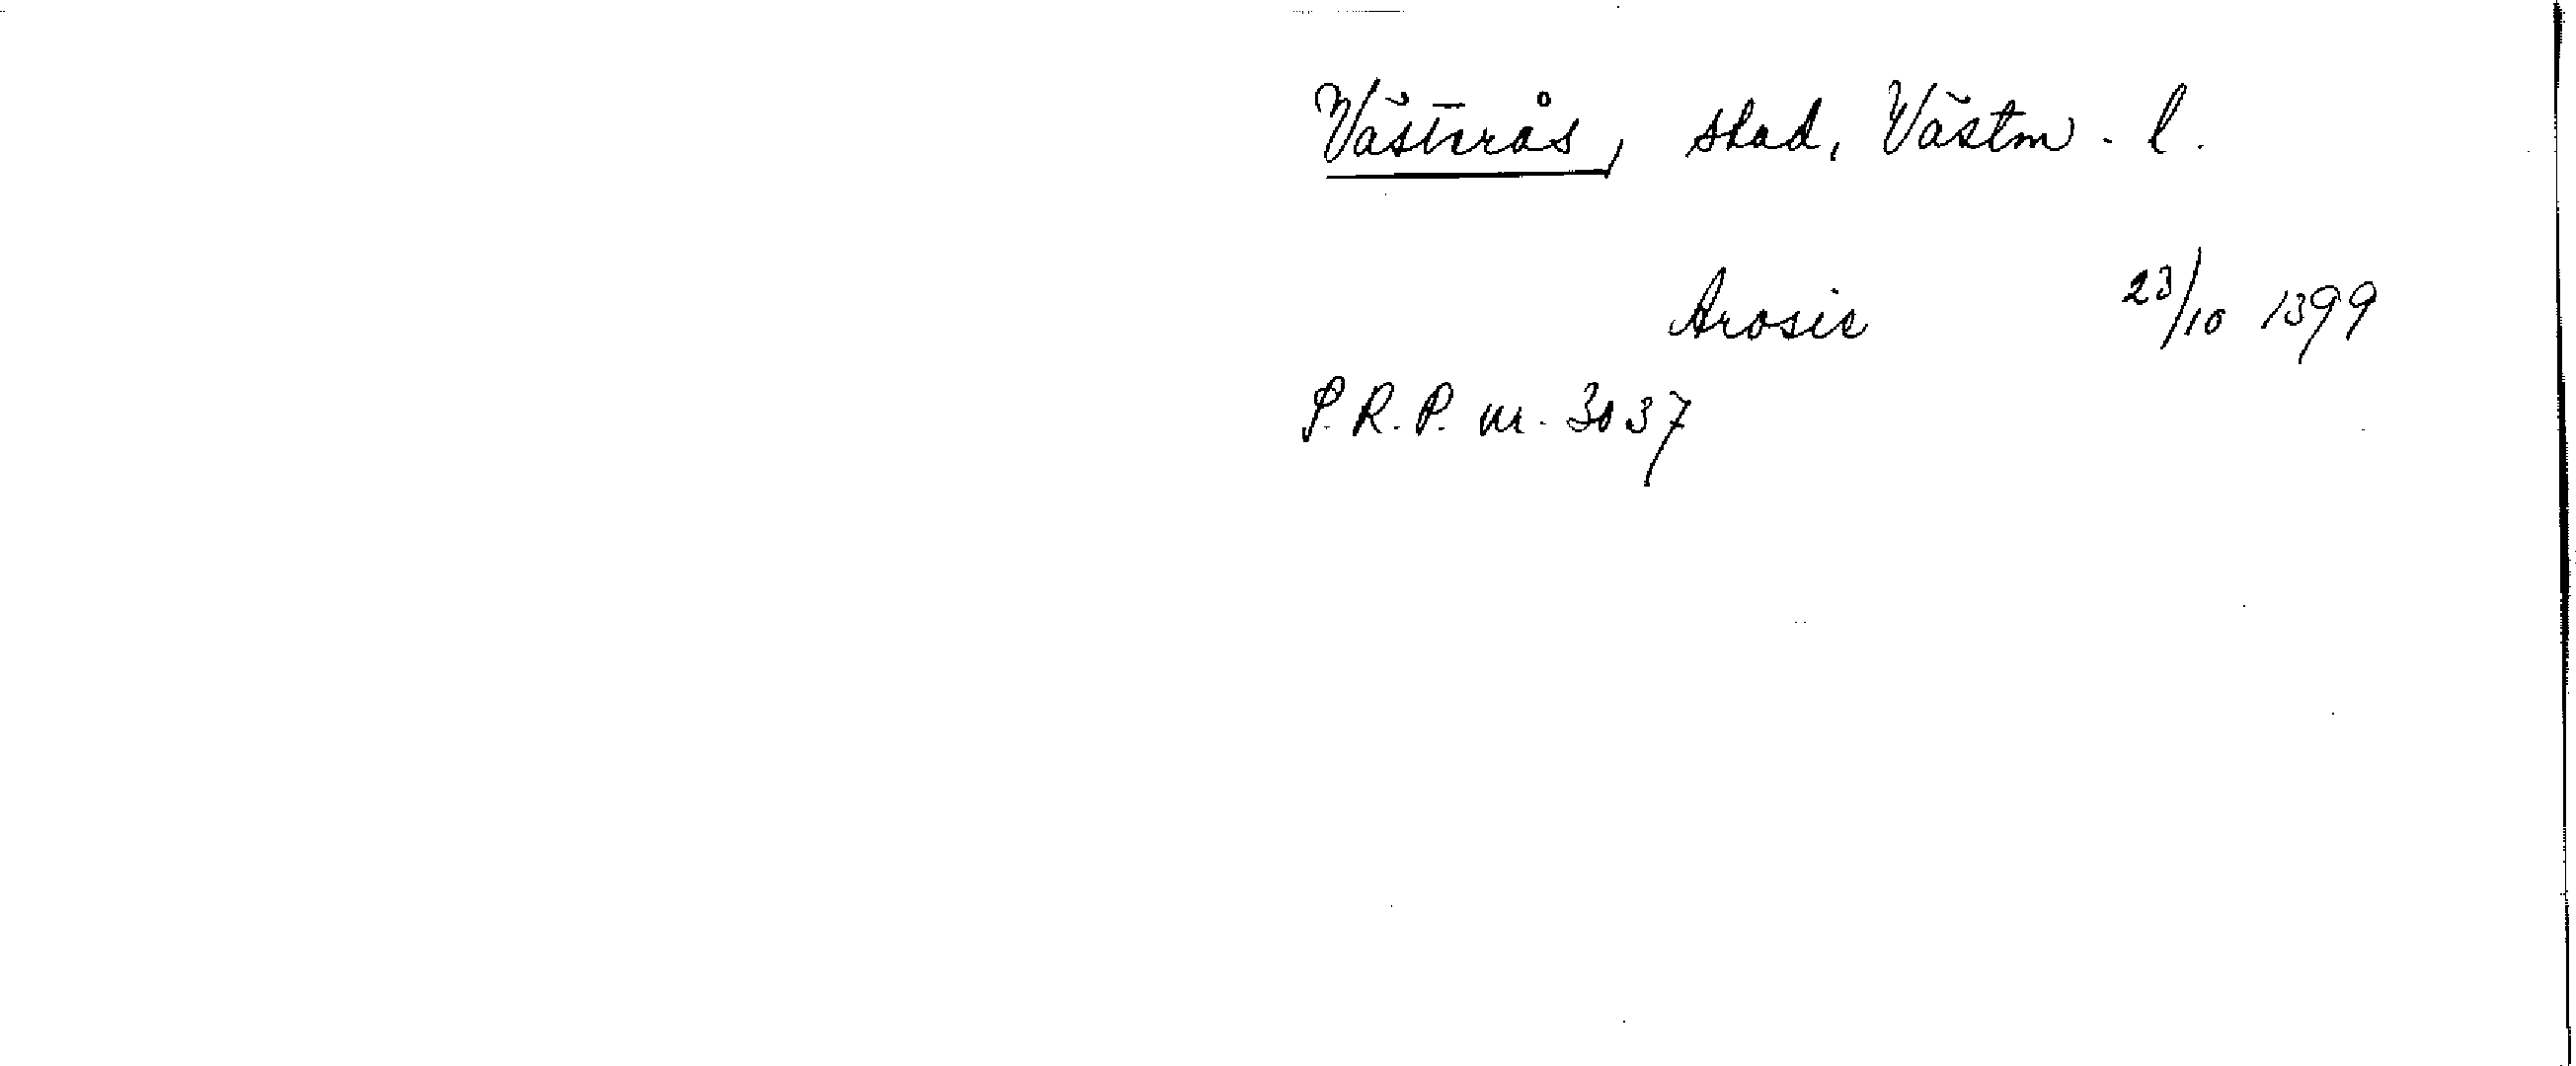 Västerås, stad, Västm. l.
Arosie 23/10 1399
P.R.P. nr. 3037